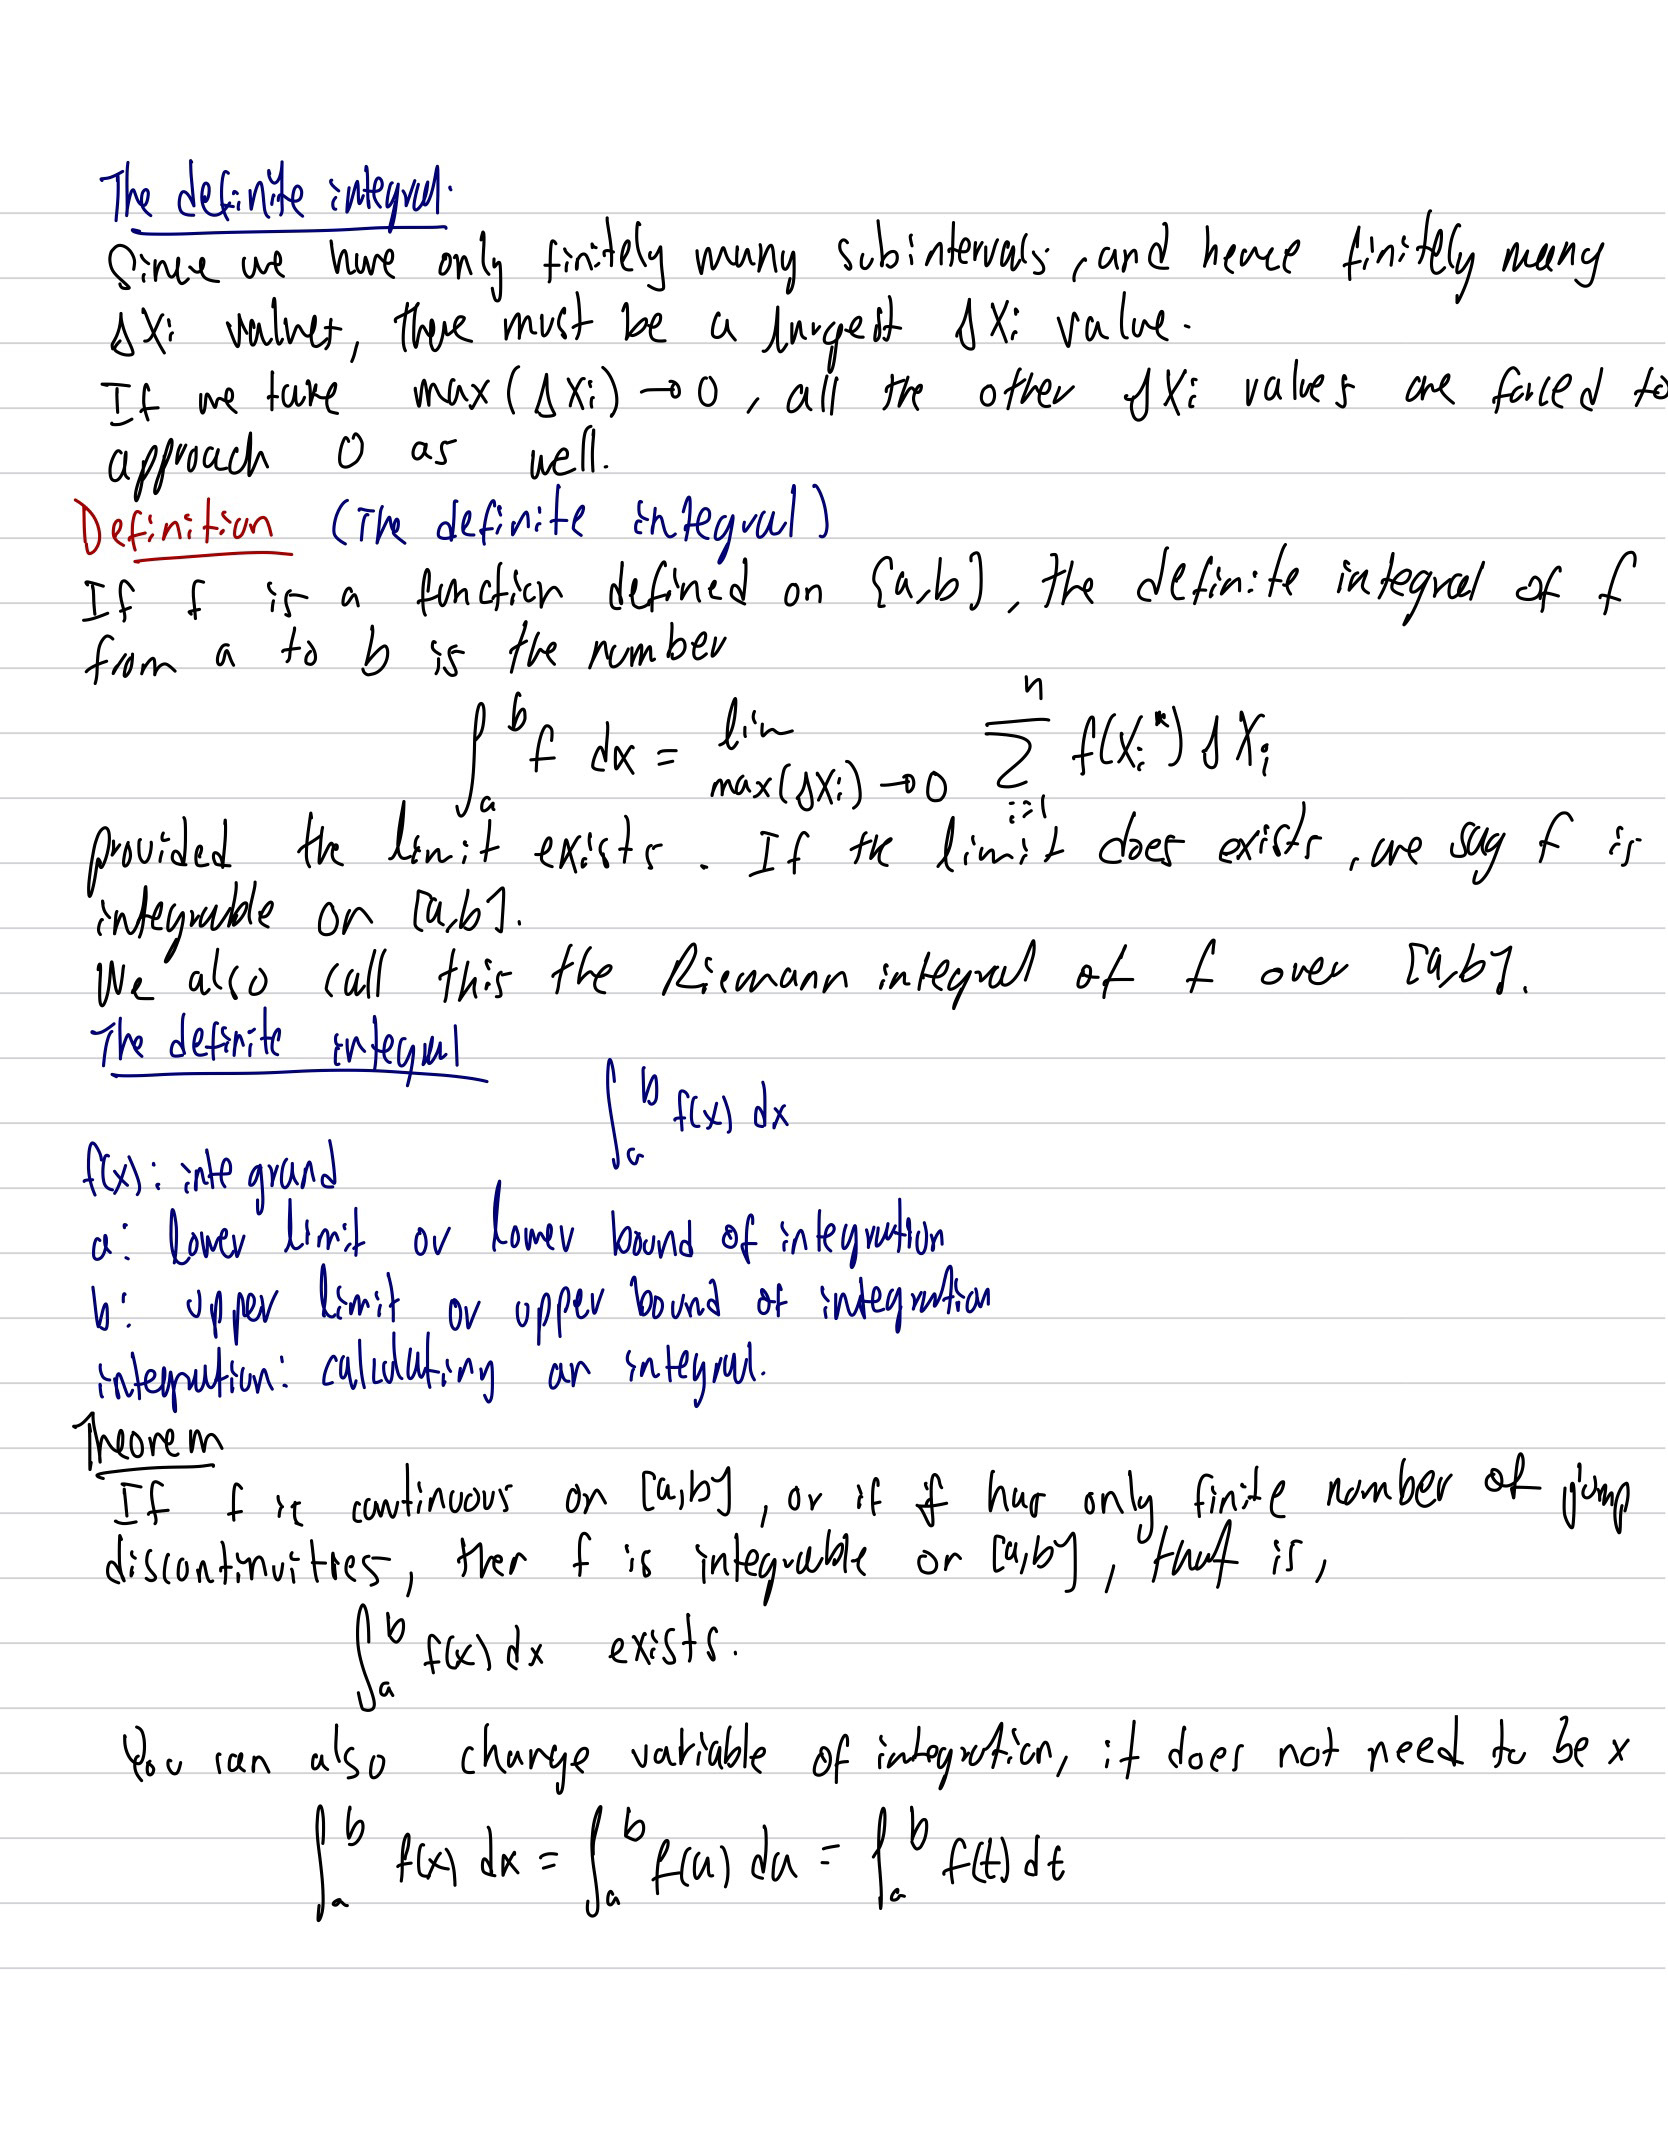 The definite integral.
Since we have only finitely many subintervals, and hence finitely many
Δxi values, there must be a largest Δxi value.
If we take max(Δxi) → 0, all the other Δxi values are forced to
approach 0 as well.
Definition (The definite integral)
If f is a function defined on [a,b], the definite integral of f
from a to b is the number
∫_a^b f dx = lim_{max(Δxi) → 0} ∑_{i=1}^n f(xi*) Δxi
provided the limit exists. If the limit does exists, we say f is
integrable on [a,b].
We also call this the Riemann integral of f over [a,b].
The definite integral
∫_a^b f(x) dx
f(x): integrand
a: lower limit or lower bound of integration
b: upper limit or upper bound of integration
integration: calculating an integral.
Theorem
If f is continuous on [a,b], or if f has only finite number of jump
discontinuities, then f is integrable on [a,b], that is,
∫_a^b f(x) dx exists.
You can also change variable of integration, it does not need to be x
∫_a^b f(x) dx = ∫_a^b f(u) du = ∫_a^b f(t) dt